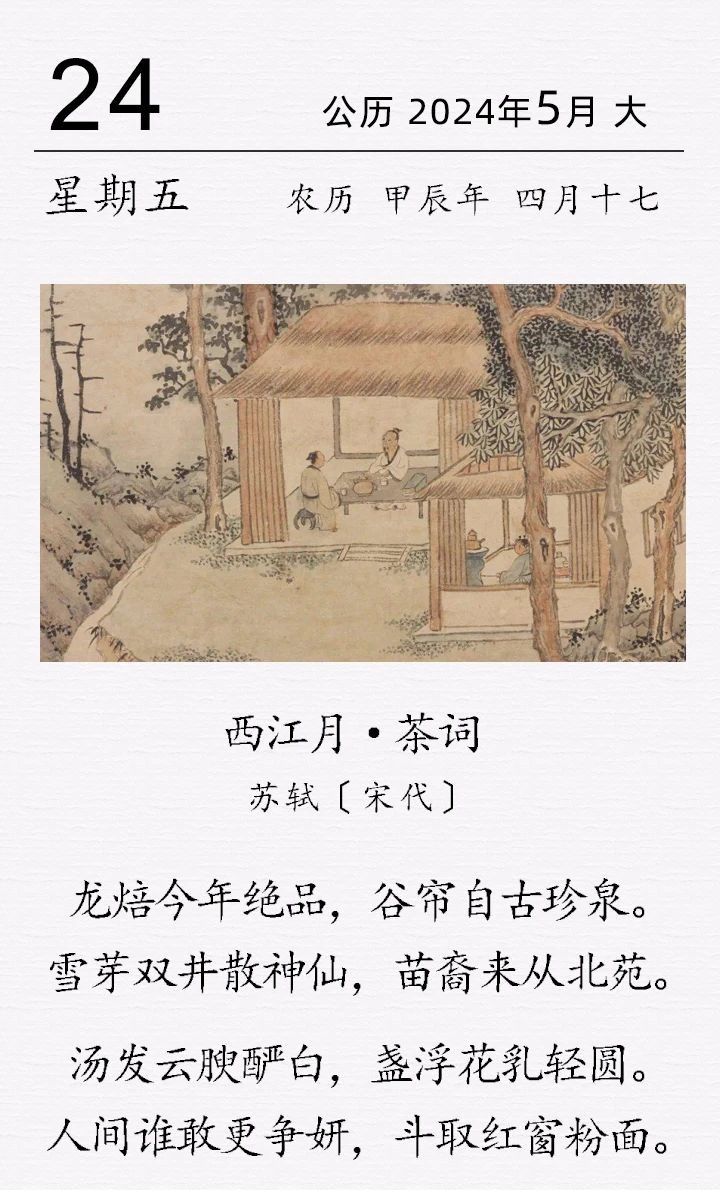 24
公历 2024年5月 大
星期五
农历 甲辰年 四月十七
西江月·茶词
苏轼〔宋代〕
龙焙今年绝品，谷帘自古珍泉。
雪芽双井散神仙，苗裔来从北苑。
汤发云腴酽白，盏浮花乳轻圆。
人间谁敢更争妍，斗取红窗粉面。